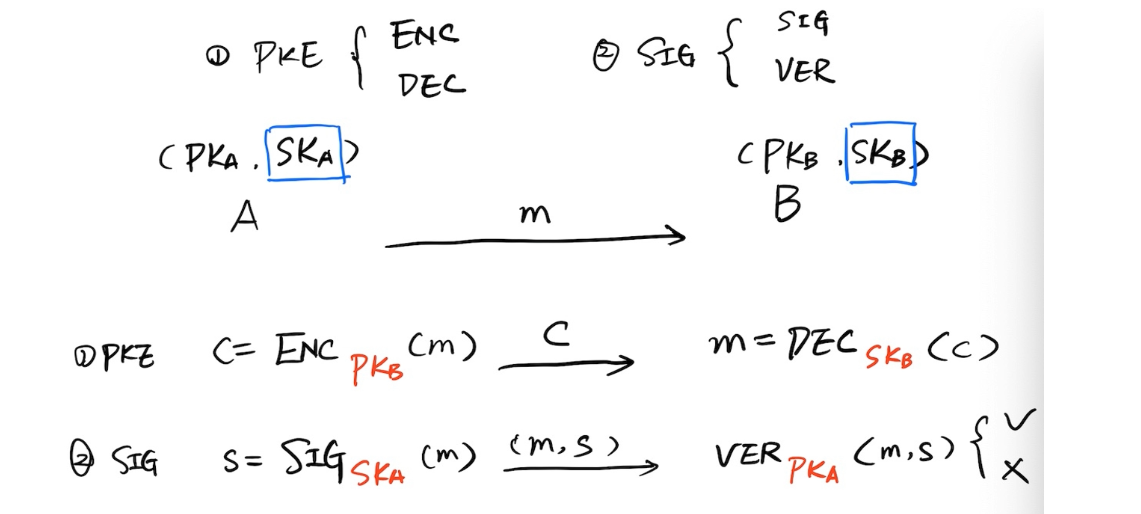 ① PKE { ENC DEC ② SIG { SIG VER
(PKA, SKA) (PKB, SKB)
A m B
① PKE C= ENC PKB (m) C m= DEC SKB (c)
② SIG S= SIG SKA (m) (m,s) VER PKA (m,s) { ✓ ✗